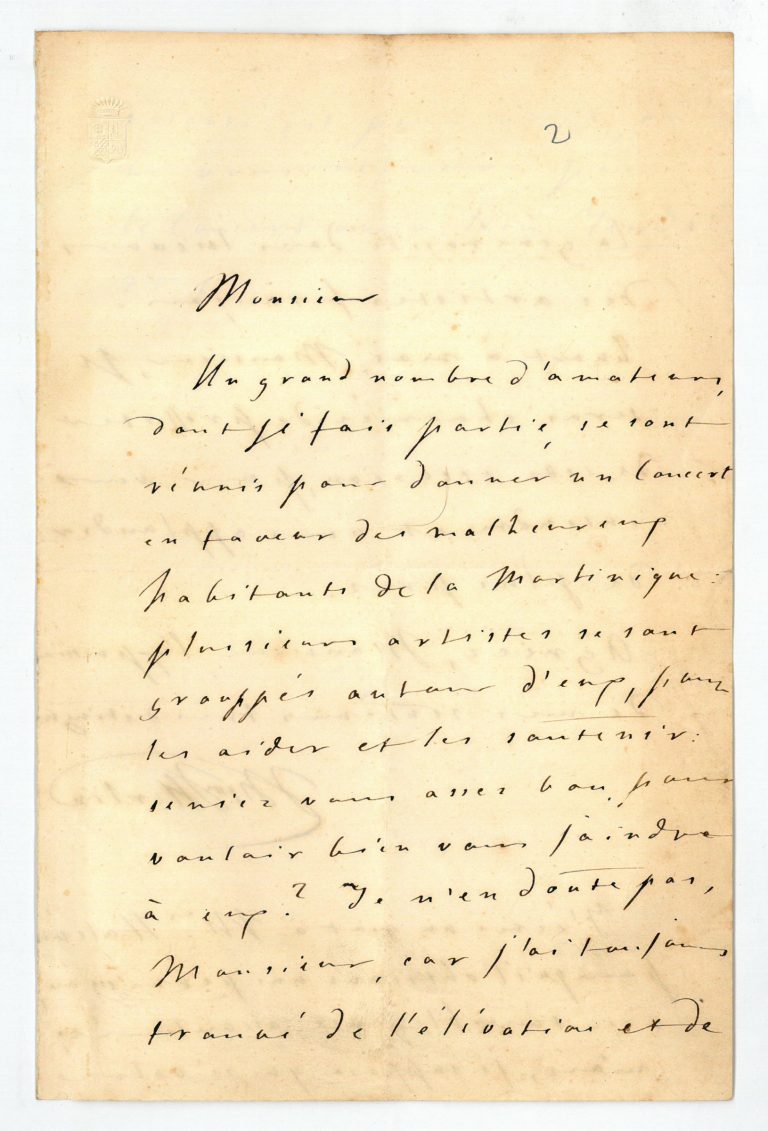 2
Monsieur
Un grand nombre d'amateurs,
dont je fais partie, se sont
réunis pour donner un Concert
en faveur des malheureux
habitants de la Martinique :
plusieurs artistes se sont
grouppés autour d'eux, pour
les aider et les soutenir :
seriez vous assez bon, pour
vouloir bien vous joindre
à eux ? Je n'en doute pas,
Monsieur, car j'ai toujours
trouvé de l'élévation et de